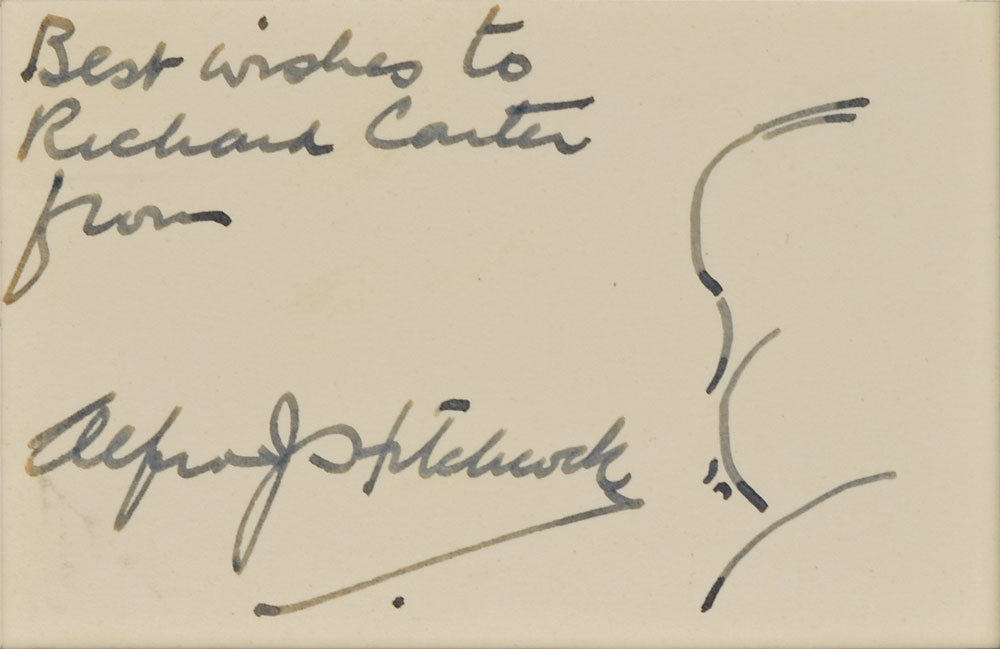 Best wishes to
Richard Carter
from
Alfred J Hitchcock